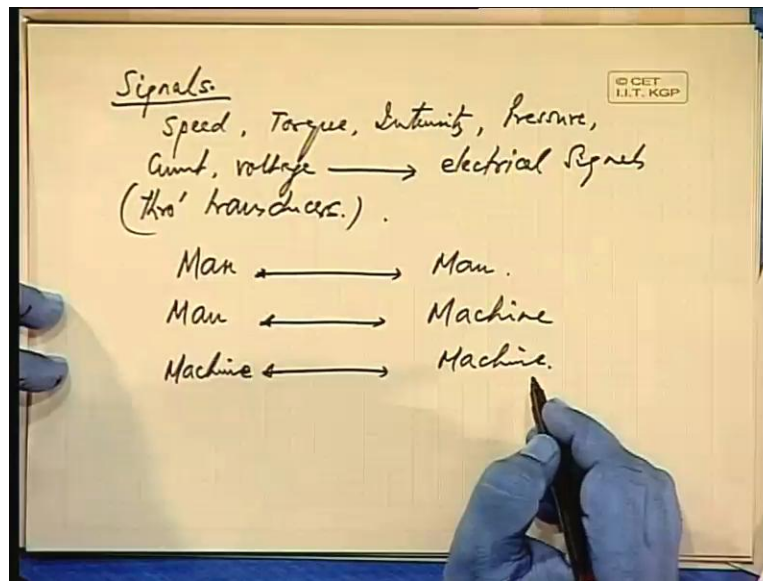 Signals.
© CET
I.I.T. KGP
Speed, Torque, Intensity, Pressure,
Current, voltage → electrical Signals
(thro' transducers.).
Man ↔ Man.
Man ↔ Machine
Machine ↔ Machine.